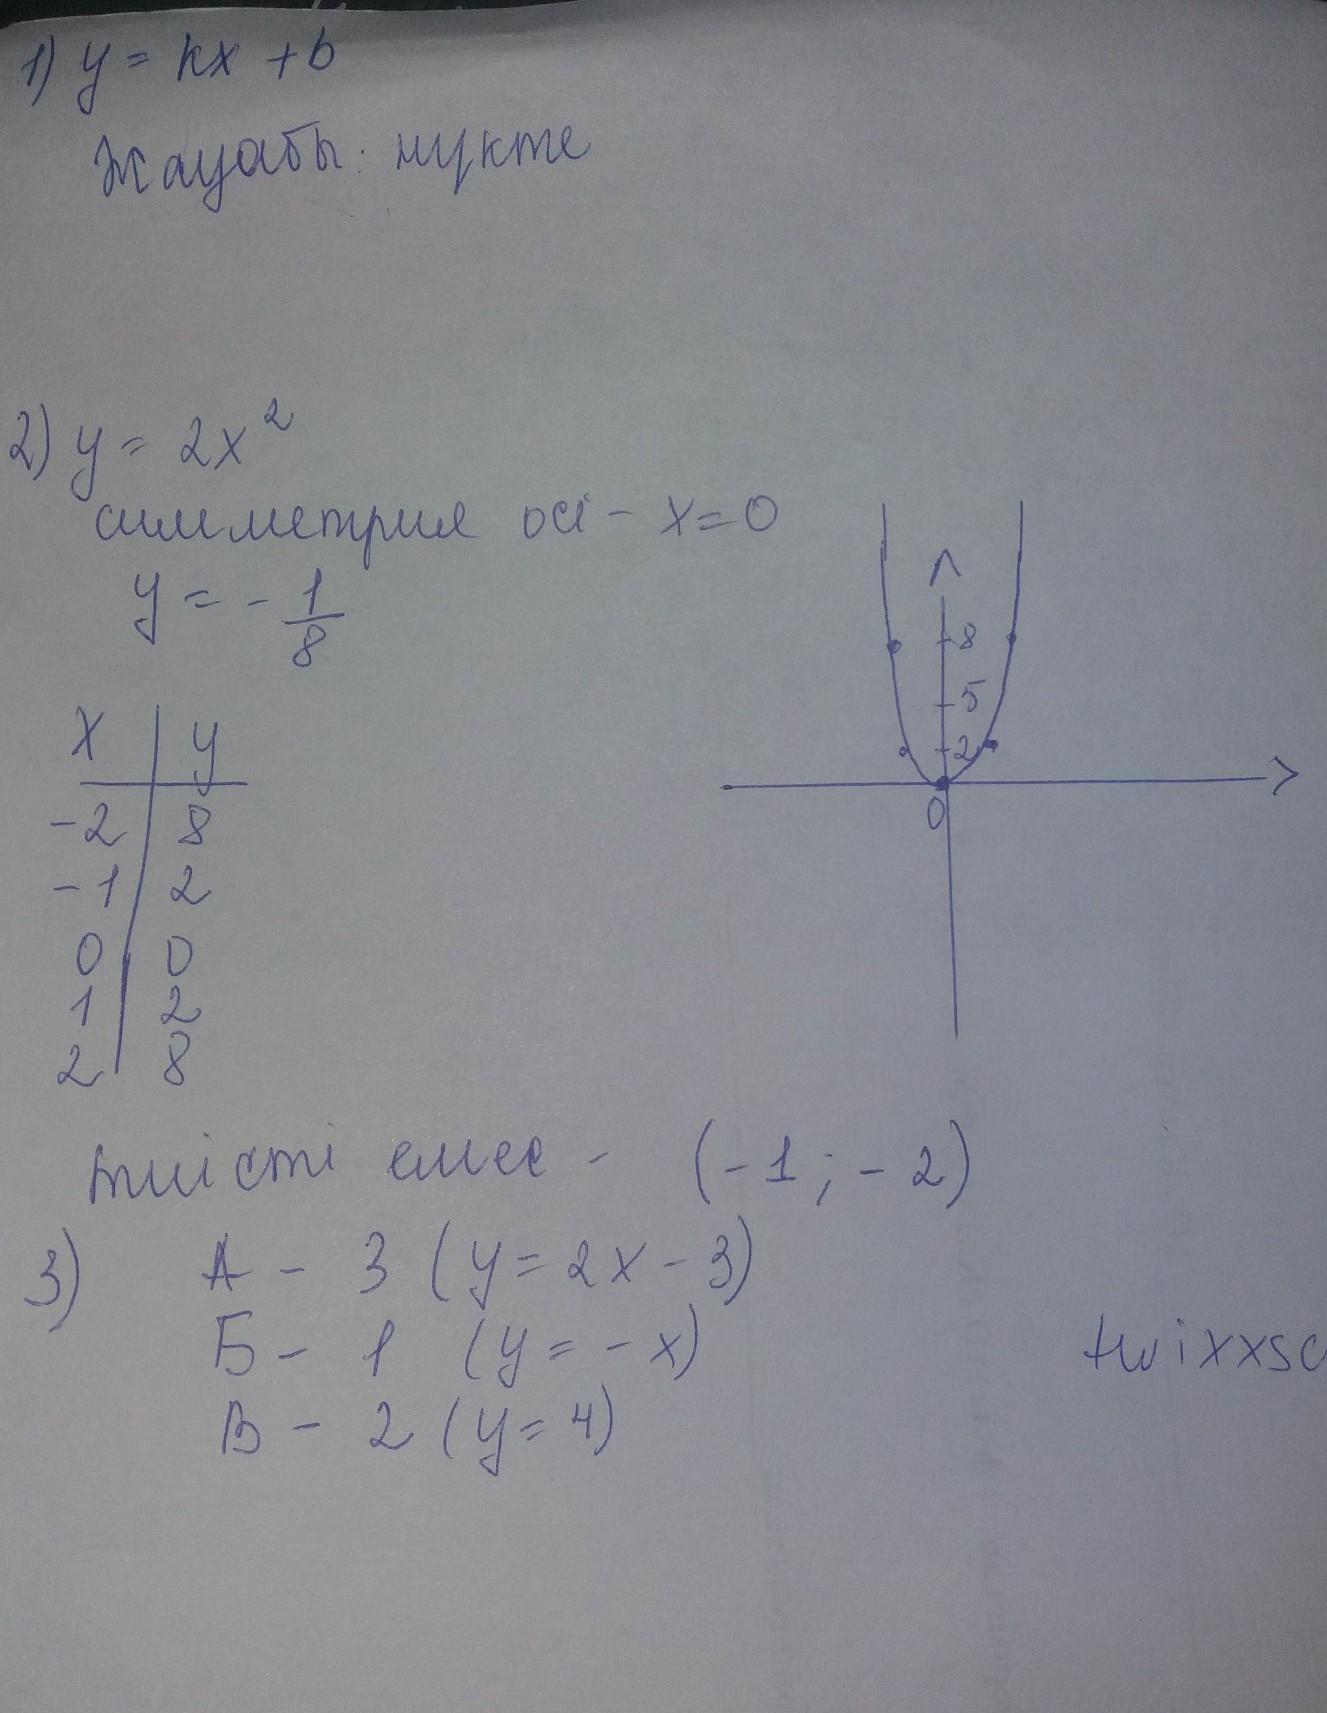 1) y = kx + b
Жауабы: нүкте
2) y = 2x²
симметрия осі - x = 0
y = - 1/8
8
5
2
0
x y
-2 8
-1 2
0 0
1 2
2 8
тиісті емес - (-1; -2)
3) А - 3 (y = 2x - 3)
Б - 1 (y = - x)
В - 2 (y = 4)